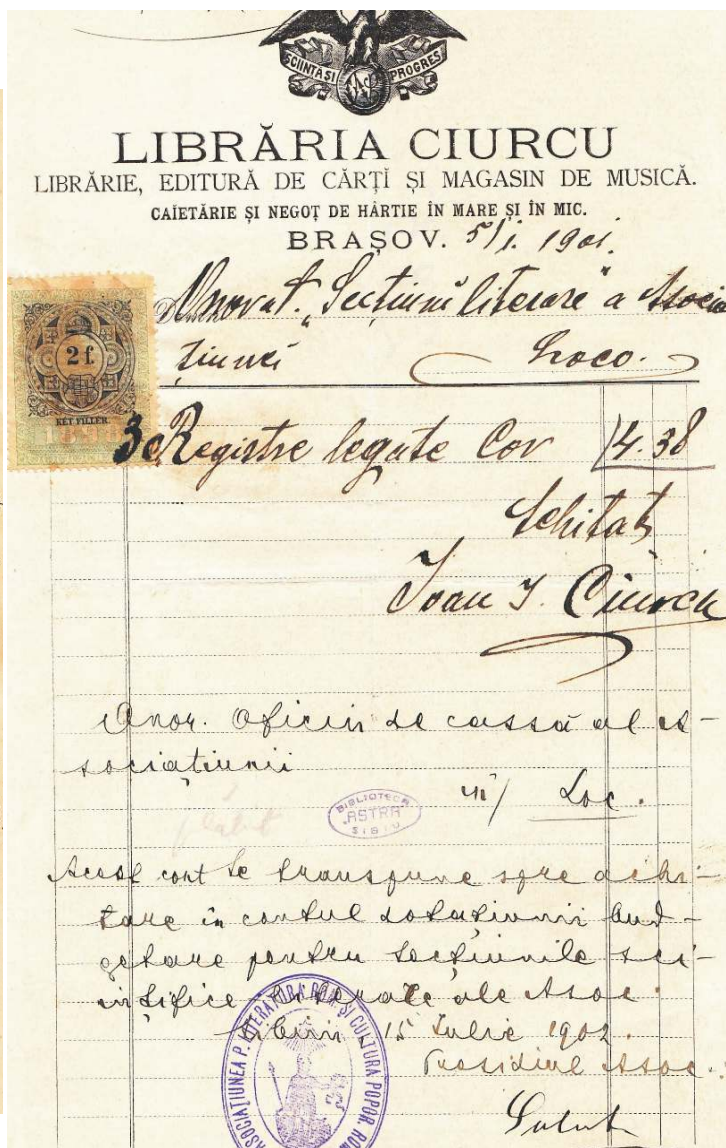 SCIINTA SI PROGRES
LIBRĂRIA CIURCU
LIBRĂRIE, EDITURĂ DE CĂRȚĬ ȘI MAGASIN DE MUSICĂ.
CAÍETĂRIE ȘI NEGOȚ DE HÂRTIE ÎN MARE ȘI ÎN MIC.
BRAȘOV. 5/I. 1901.
Onorat. „Secțiuni literare" a Asocia
țiunei Loco.
2 f.
KÉT FILLÉR
1898
3 Registre legate Cor 14.38
Achitat
Ioan I. Ciurcu
Onor. Oficiu de cassă al A-
sociațiunii
în/ Loc.
BIBLIOTECA
"ASTRA"
SIBIU
Acest cont se transpune spre achi-
tare în contul dotațiunii bud-
getare pentru secțiunile sci-
ințifice literare ale Asoc.
Sibiiu, 15 Iulie 1902.
Presidiul Asoc.
ASOCIAȚIUNEA P. LITERATURA ROM. ȘI CULTURA POPOR. ROM